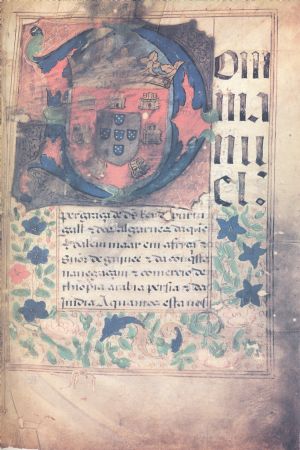 Dom
ma
nu
el:
per graça de ds Rey de purtu
gall & dos Algarues daque
& dalem maar em africa &
Snor de guinee & da conqsta
nauegaçam & comercio de
thiopia arabia persia & da
India A quantos esta nos